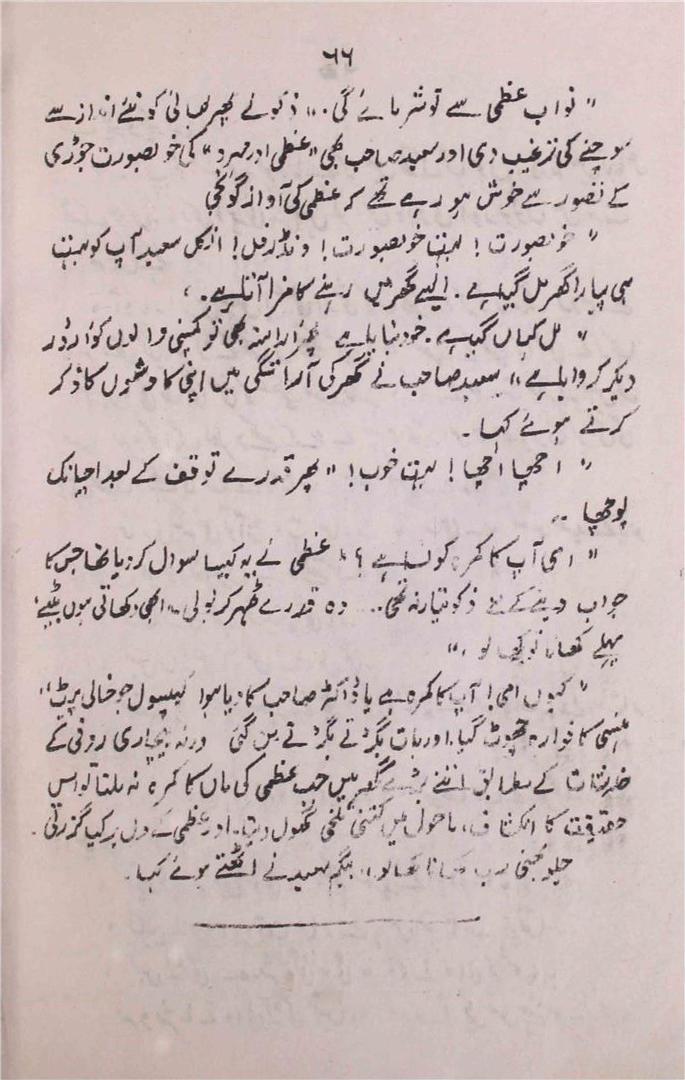 ۶۶
" نواب عظمی سے تو شرمائے گی ۔" ذکو نے پھر بھائی کو نئے انداز سے
سوچنے کی ترغیب دی اور سعید صاحب بھی "عظمی اور مہرو" کی خوبصورت جوڑی
کے تصور سے خوش ہو رہے تھے کہ عظمی کی آواز گونجی
" خوبصورت ! بہت خوبصورت ! ونڈرفل ! انکل سعید آپ کو بہت
ہی پیارا گھر مل گیا ہے ۔ ایسے گھر میں رہنے کا مزا آتا ہے ۔ "
" مل کہاں گیا ہے ۔ خود بنایا ہے پھر آراستہ بھی تو کمپنی والوں کو آرڈر
دیکر کروایا ہے " سعید صاحب نے گھر کی آراستگی میں اپنی کاوشوں کا ذکر
کرتے ہوئے کہا ۔
" اچھا اچھا ! بہت خوب ! " پھر قدرے توقف کے بعد اچانک
پوچھا ۔۔
" امی آپ کا کمرہ کونسا ہے ؟ " عظمی نے یہ کیسا سوال کر دیا تھا جس کا
جواب دینے کے لئے ذکو تیار نہ تھی ۔۔ وہ قدرے ٹھہر کر بولی ۔ " ابھی دکھاتی ہوں بیٹے
پہلے کھانا تو کھا لو ۔ "
" کیوں امی ! آپ کا کمرہ ہے یا ڈاکٹر صاحب کا دیا ہوا کیپسول جو خالی پیٹ "
ہنسی کا فوارہ چھوٹ گیا اور بات بگڑتے بگڑتے بن گئی ورنہ بیچاری روفی کے
خدشات کے مطابق اتنے بڑے گھر میں جب عظمی کی ماں کا کمرہ نہ ملتا تو اس
حقیقت کا انکشاف ، ماحول میں کتنی تلخی گھول دیتا ۔ اور عظمی کے دل پر کیا گزرتی ۔
چلو بھئی سب کھانا کھا لو " بیگم سعید نے اٹھتے ہوئے کہا ۔